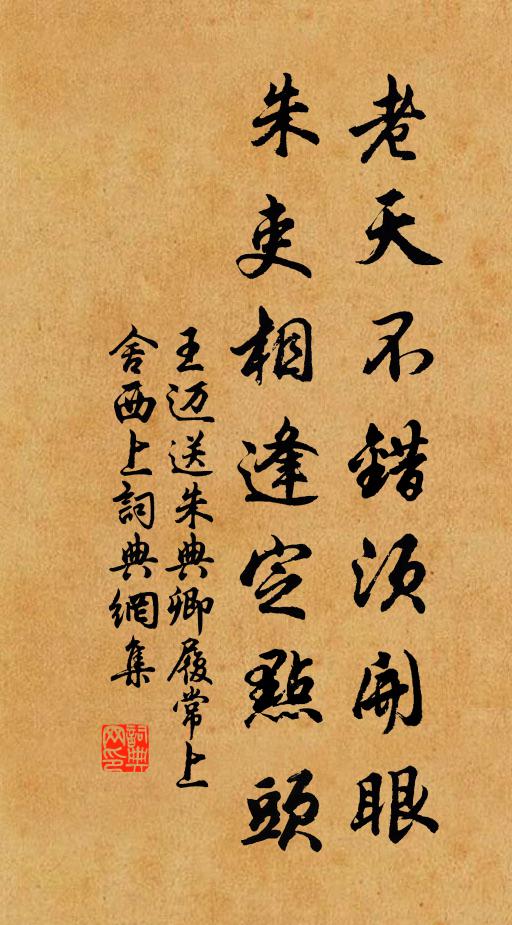 老天不錯須開眼
朱吏相逢定點頭
王迈送朱典卿履常上
舍西上詞典網集
詞典网印